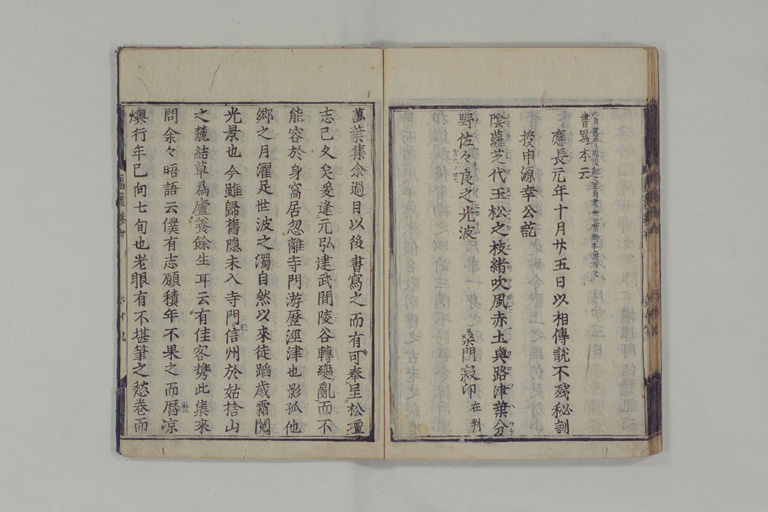 書寫本云
應長元年十月廿五日以相傳說不殘秘訓
授申源幸公訖
陰蘿芝代玉松之枝緒吹風赤土與路津葉分
野佐々良之光波
桑門寂印在判
萬葉集余過目以後書寫之而有可奉呈松壇
志已久矣爰逢元弘建武間陵谷轉變亂而不
能容於身窩居忽離寺門游歷涇津也影孤他
鄉之月濯足世波之濁自然以來徒蹈歲霜閱
光景也今雖歸舊隱未入寺門信州於姑捨山
之麓結草為廬養餘生耳云有佳客携此集來
問余々晤語云僕有志願積年不果之而曆凉
燠行年已向七旬也老眼有不堪筆之愁卷而